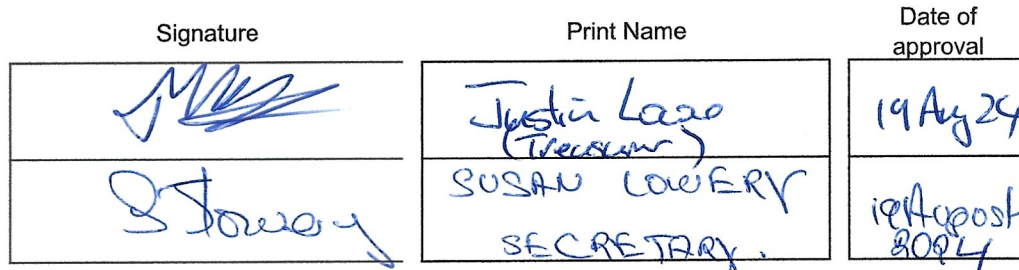 Signature
Print Name
Date of
approval
Justin
(Treasurer)
19 Aug 24
S Lowery
SUSAN LOWERY
SECRETARY.
19 August
2024